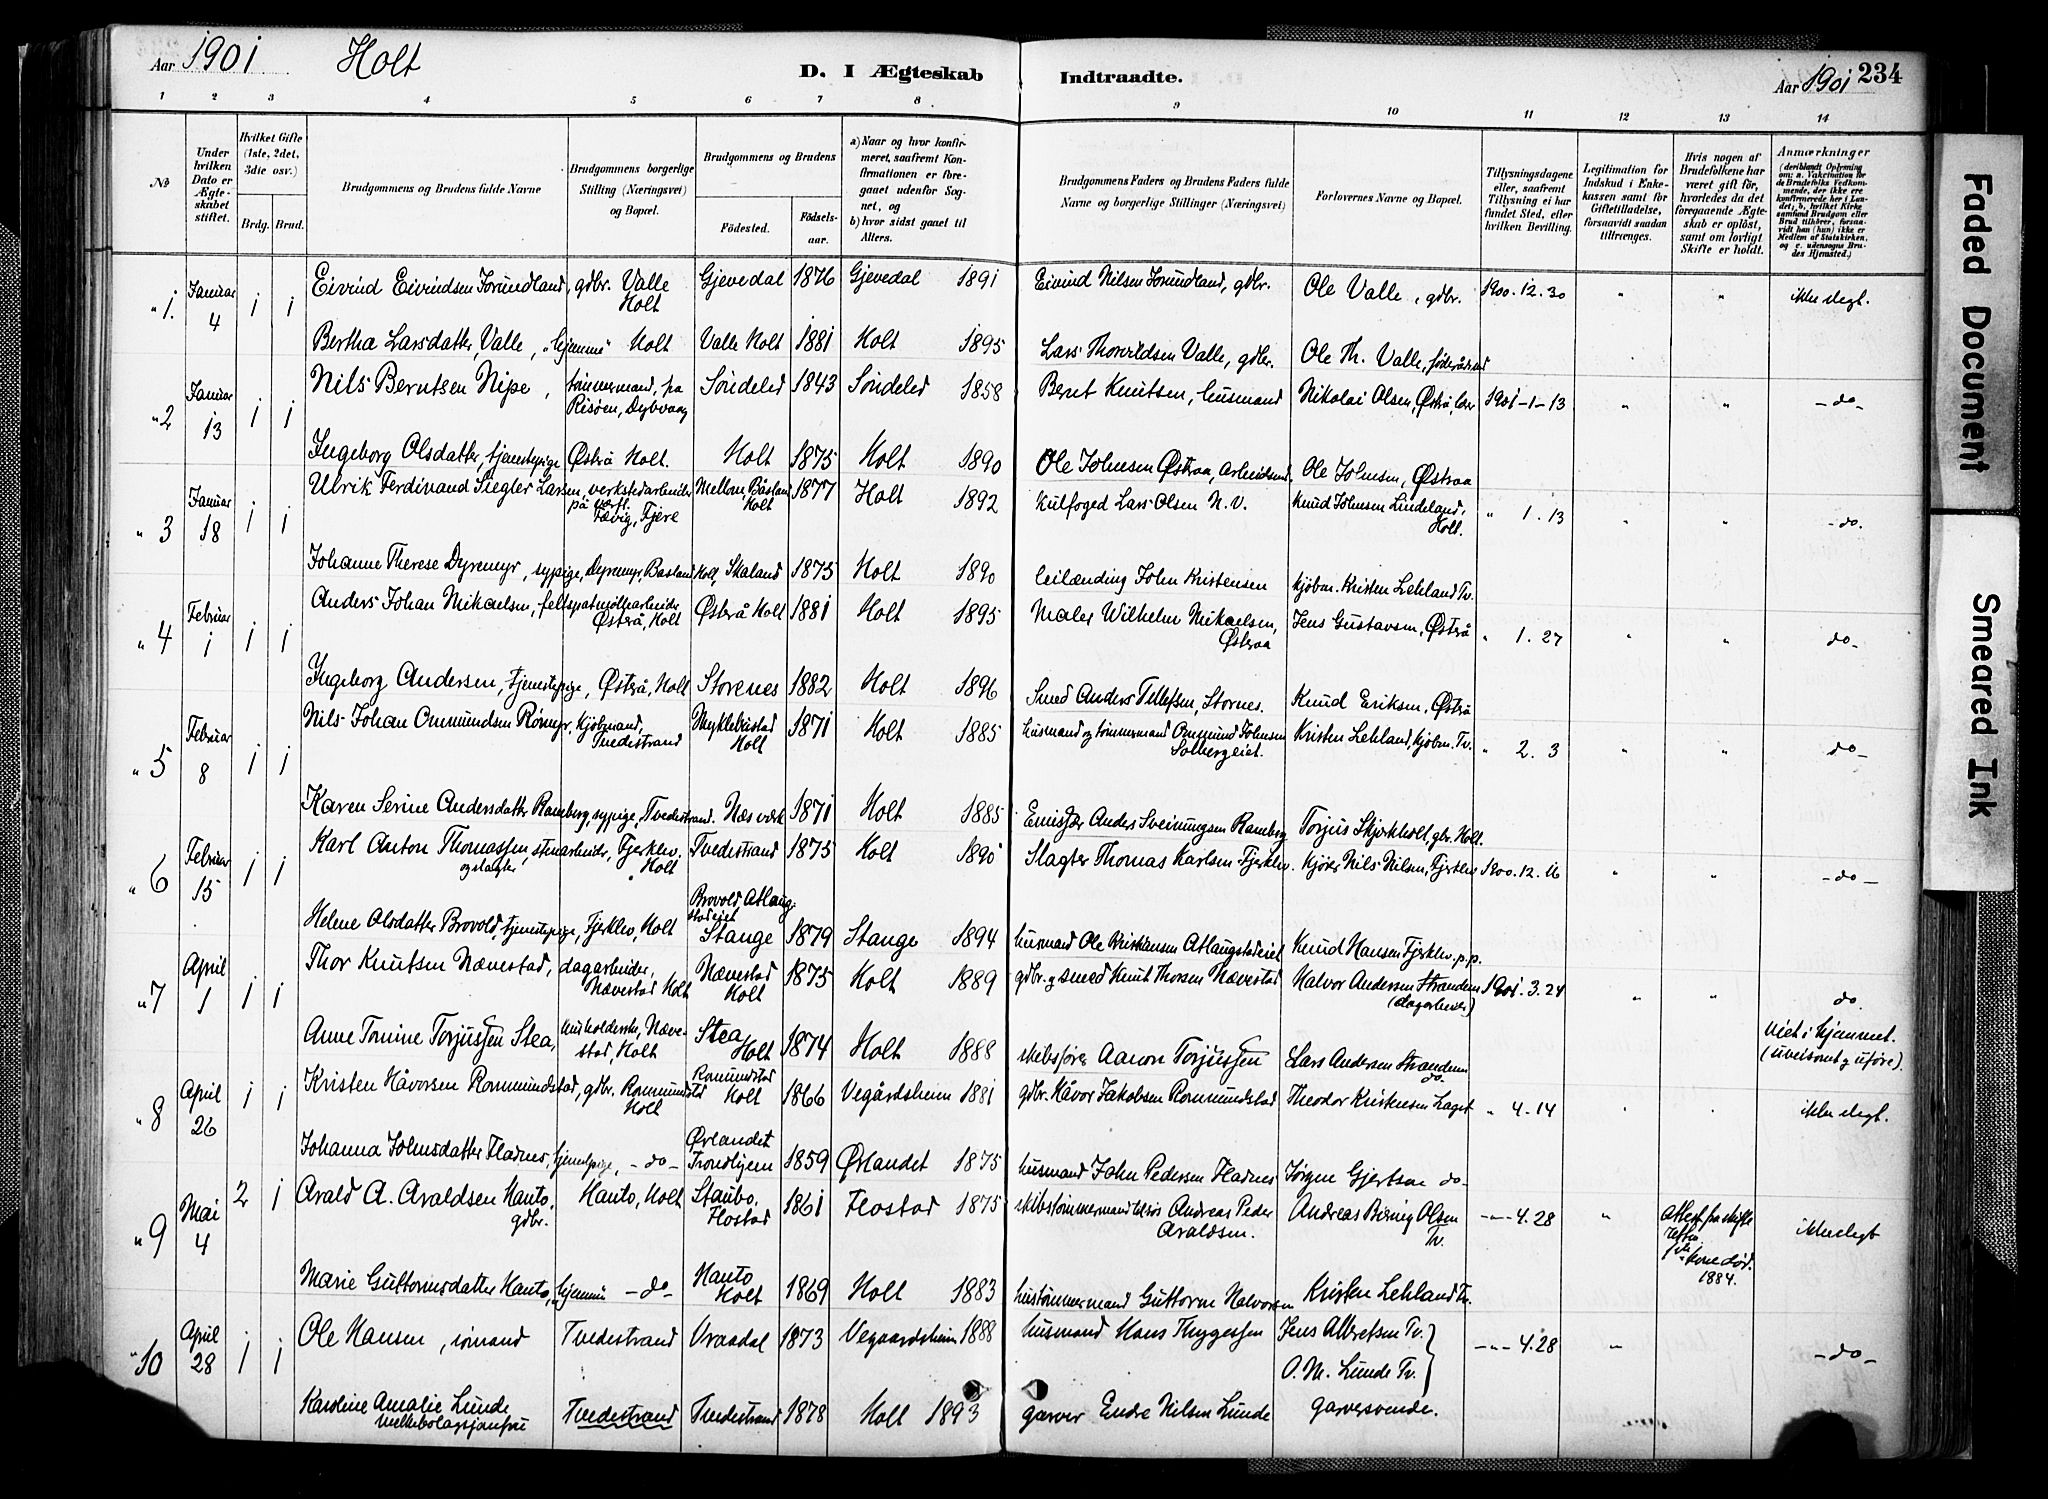 Aar 1901 Holt D. I Ægteskab Indtraadte. Aar 1901 234
1 2 3 4 5 6 7 8 9 10 11 12 13 14
№
Under hvilken Dato er Ægteskabet stiftet.
Hvilket Gifte (1ste, 2det, 3die osv.)
Brdg. Brud.
Brudgommens og Brudens fulde Navne
Brudgommens borgerlige Stilling (Næringsvei) og Bopæl.
Brudgommens og Brudens
Fødested. Fødselsaar.
a) Naar og hvor konfirmeret, saafremt Konfirmationen er foregaaet udenfor Sognet, og
b) hvor sidst gaaet til Alters.
Brudgommens Faders og Brudens Faders fulde Navne og borgerlige Stillinger (Næringsvei)
Forlovernes Navne og Bopæl.
Tillysningsdagene eller, saafremt Tillysning ei har fundet Sted, efter hvilken Bevilling.
Legitimation for Indskud i Enkekassen samt for Giftetilladelse, forsaavidt saadan tiltrænges.
Hvis nogen af Brudefolkene har været gift før, hvorledes da det foregaaende Ægteskab er opløst, samt om lovligt Skifte er holdt.
Anmærkninger
(deriblandt Oplysning om: a. Vakcination for de Brudefolks Vedkommende, der ikke ere konfirmerede her i Landet; b. hvilket Kirkesamfund Brudgom eller Brud tilhører, forsaavidt han (hun) ikke er Medlem af Statskirken, og c. udensogns Brudes Hjemsted.)
" 1. Januar 4 1 1 Eivind Eivindsen Jorundland, gdbr. Valle Holt Gjevedal 1876 Gjevedal 1891 Eivind Nilsen Jorundland, gdbr. Ole Valle, gdbr. 1900.12.30 " " ikke slegt.
Bertha Larsdatter Valle, hjemme Holt Valle Holt 1881 Holt 1895 Lars Thorvildsen Valle, gdbr. Ole Th. Valle, føderådsmd
" 2 Januar 13 1 1 Nils Berntsen Nipe, tømmermand, på Risøen, Dybvaag Søndeled 1843 Søndeled 1858 Bernt Knutsen, husmand Nikolai Olsen, Østrå, 1901-1-13 " " -do-
Ingeborg Olsdatter, tjenestepige Østrå Holt. Holt 1875 Holt 1890 Ole Johnsen Østraa, arbeidsmd. Ole Johnsen, Østraa
" 3 Januar 18 1 1 Ulrik Ferdinand Siegler Larsen, verkstedarbeider på værft. Fævig, Fjere Mellom Båsland Holt 1877 Holt 1892 Kulfoged Lars Olsen N. V. Knud Johnsen Lindeland, Holt. " 1. 13 " " -do.
Johanne Therese Dyremyr, sypige, Dyremyr, Basland Holt, Skaland 1875 Holt 1890 leilænding John Kristensen kjøbm. Kristen Lehland Tv.
" 4 Februar 1 1 1 Anders Johan Mikaelsen, feltspatmøllearbeider Østrå, Holt Østrå Holt 1881 Holt 1895 Maler Wilhelm Mikaelsen, Østraa Jens Gustavsen, Østrå " 1. 27 " " do-
Ingeborg Andersen, tjenestepige, Østrå, Holt Storenes 1882 Holt 1896 Smed Anders Tellefsen, Stornes. Knud Eriksen, Østrå
" 5 Februar 8 1 1 Nils Johan Ommundsen Rømyr, kjøbmand, Tvedestrand Myklebustad Holt 1871 Holt 1885 husmand og tømmermand Ommund Johnsen Solbergeiet. Kristen Lehland, kjøbm. Tv. " 2. 3 " " do-
Karen Serine Andersdatter Ramberg, sypige, Tvedestrand. Næs værk 1871 Holt 1885 Anders Sveinungsen Ramberg Torjus Skjerkholt, gbr. Holt.
" 6 Februar 15 1 1 Karl Anton Thomassen, stenarbeider, og slagter Fjerklev. Holt Tvedestrand 1875 Holt 1890 Slagter Thomas Karlsen Fjerklev. Nils Nilsen, Fjerklev 1900.12.16 " " -do-
Helene Olsdatter Brovold, tjenestepige, Fjerklev, Holt Brovold Atlaugstadeiet Stange 1879 Stange 1894 husmand Ole Kristiansen Atlaugstadeiet Knud Hansen Fjerklev. p.p.
" 7 April 1 1 1 Thor Knutsen Nævestad, dagarbeider, Nævestad Holt Nævestad Holt 1875 Holt 1889 gdbr. og smed Knut Thorsen Nævestad Halvor Andersen Stranden (dagarbeider) 1901. 3. 24 " " do.
Anne Tomine Torjussen Stea, husholderske, Nævestad, Holt Stea Holt 1874 Holt 1888 skibsfører Aaron Torjussen Lars Andersen Stranden do. viet i hjemmet.
" 8 April 26 1 1 Kristen Håvorsen Rommundstad, gdbr. Rommundstd Holt Romundstad Holt 1866 Vegårdsheim 1881 gdbr. Håvor Jakobsen Rommundstad Theodor Kristensen Laget " 4. 14 " " ikke slegt.
Johanna Johnsdatter Fladnes, tjenestpige, -do- Ørlandet Trondhjem 1859 Ørlandet 1875 husmand John Pedersen Fladnes Jørgen Gjertsen do-
" 9 Mai 4 2 1 Arald A. Araldsen Hanto, gdbr. Hanto, Holt Staubo, Flostad 1861 Flostad 1875 skibstømmermand Andreas Peder Araldsen. Andreas Berntig Olsen Tv. -"- 4. 28 " Attest fra skifteretten kone død. 1884. ikke slegt
Marie Guttormsdatter Hanto, hjemme -do- Hanto Holt 1869 Holt 1883 hustømmermand Guttorm Halvorsen Kristen Lehland Tv.
" 10 April 28 1 1 Ole Hansen, sømand Tvedestrand Vraadal 1873 Vegaardsheim 1888 husmand Hans Thygessen Jens Albretsen Tv. -"- 4.28 " -do-
Karoline Amalie Lunde Tvedestrand Tvedestrand 1878 Holt 1893 garver Endre Nilsen Lunde O. N. Lunde Tv. garversvende.
Faded Document
Smeared Ink